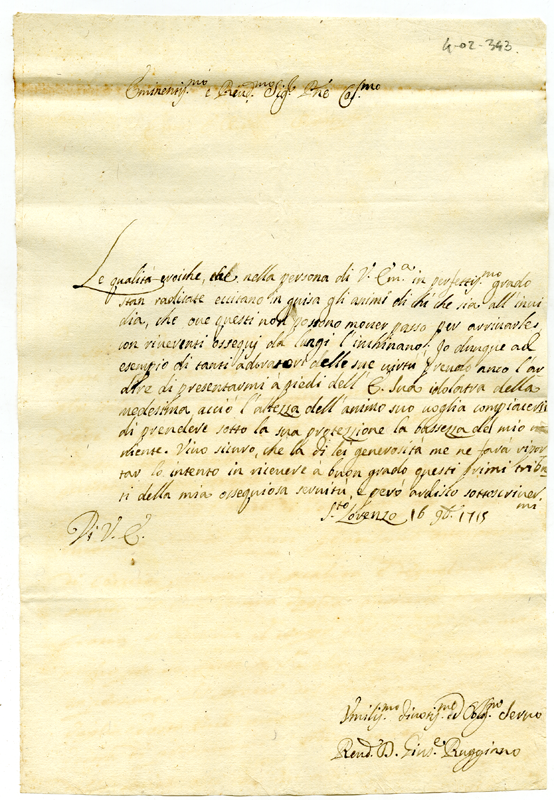 4-02-343.
Eminentis.mo e Reud.mo Sig.e Pñe Col.mo
Le qualità eroiche, che nella persona di V. Em.a in perfettis.mo grado
stan radicate eccitano in guisa gli animi di chi che sia all'invi
dia, che ove questi non possono mover passo per arrivarle,
con riverenti ossequij da lungi l'inchinano. Io dunque ad
esempio di tanti adoratori delle sue virtù prendo anco l'ar
dire di presentarmi a piedi dell'E. Sua idolatra della
medesima acciò l'altezza dell'animo suo voglia compiacersi
di prendere sotto la sua protezione la bassezza del mio
niente. Vivo sicuro, che la di lei generosità me ne farà ripor
tar lo intento in ricevere a buon grado questi primi tribu
ti della mia ossequiosa servitù, e però ardisco sottoscriver
mi
S.to Lorenzo 16 9b.e 1715
Di V. E.
Vmilis.mo divotis.mo ed Oblig.mo Servo
Reud.o D. Gius.e Ruggiano